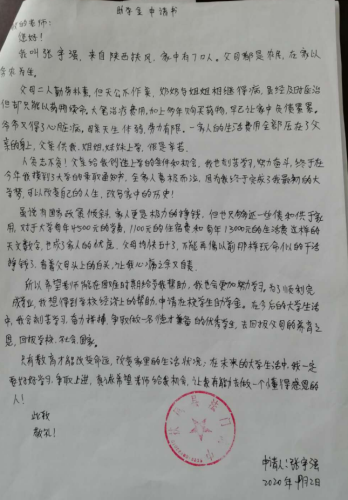 助学金申请书
的老师:
您好!
我叫张宇强,来自陕西扶风,家中有7口人。父母都是农民,在家以
务农为生。
父母二人勤劳朴素,但天公不作美,奶奶与姐姐相继得病,虽经及时医治
但却无法以药物续命。大笔治疗费用,加上多年购买药物,早已让家中负债累累。
爷爷又得了心脏病,母亲天生体弱,劳力有限。一家人的生活费用全部压在了父
亲的肩上,父亲供我、姐姐、妹妹上学,很是辛苦。
人苦志不苦!父亲给我创造上学的条件和机会,我也刻苦学习,努力奋斗,终于在
今年我接到了大学的录取通知书。全家人喜极而泣,因为我终于完成了我最初的大
学梦,可以改变自己的人生,改写家中的历史!
虽说有国家政策倾斜,家人更是极力的挣钱,但也只够还一些债和供于家
用,对于大学每年4500元的学费,1100元的住宿费和每年13000元的生活费这样的
天文数字,也成了家人的忧虑。父母均快五十了,不能再像以前那样玩命似的干活
挣钱了,看着父母头上的白发,让我心痛之余又自责。
所以希望老师能在困难时期给予我帮助,我也会更加努力学习。为了顺利完
成学业,我想得到学校经济上的帮助,申请在校学生助学金。在今后的大学生活
中,我会刻苦学习,奋力拼搏,争取做一名德才兼备的优秀学生,去回报父母的养育之
恩,回报学校、社会、国家。
只有教育才能改变命运,改变家里的生活状况;在未来的大学生活中,我一定
要好好学习,争取上进,真诚希望老师给我机会,让我有能力去做一个懂得感恩的
人!
此致
敬礼!
申请人:张宇强
2020年 月2日